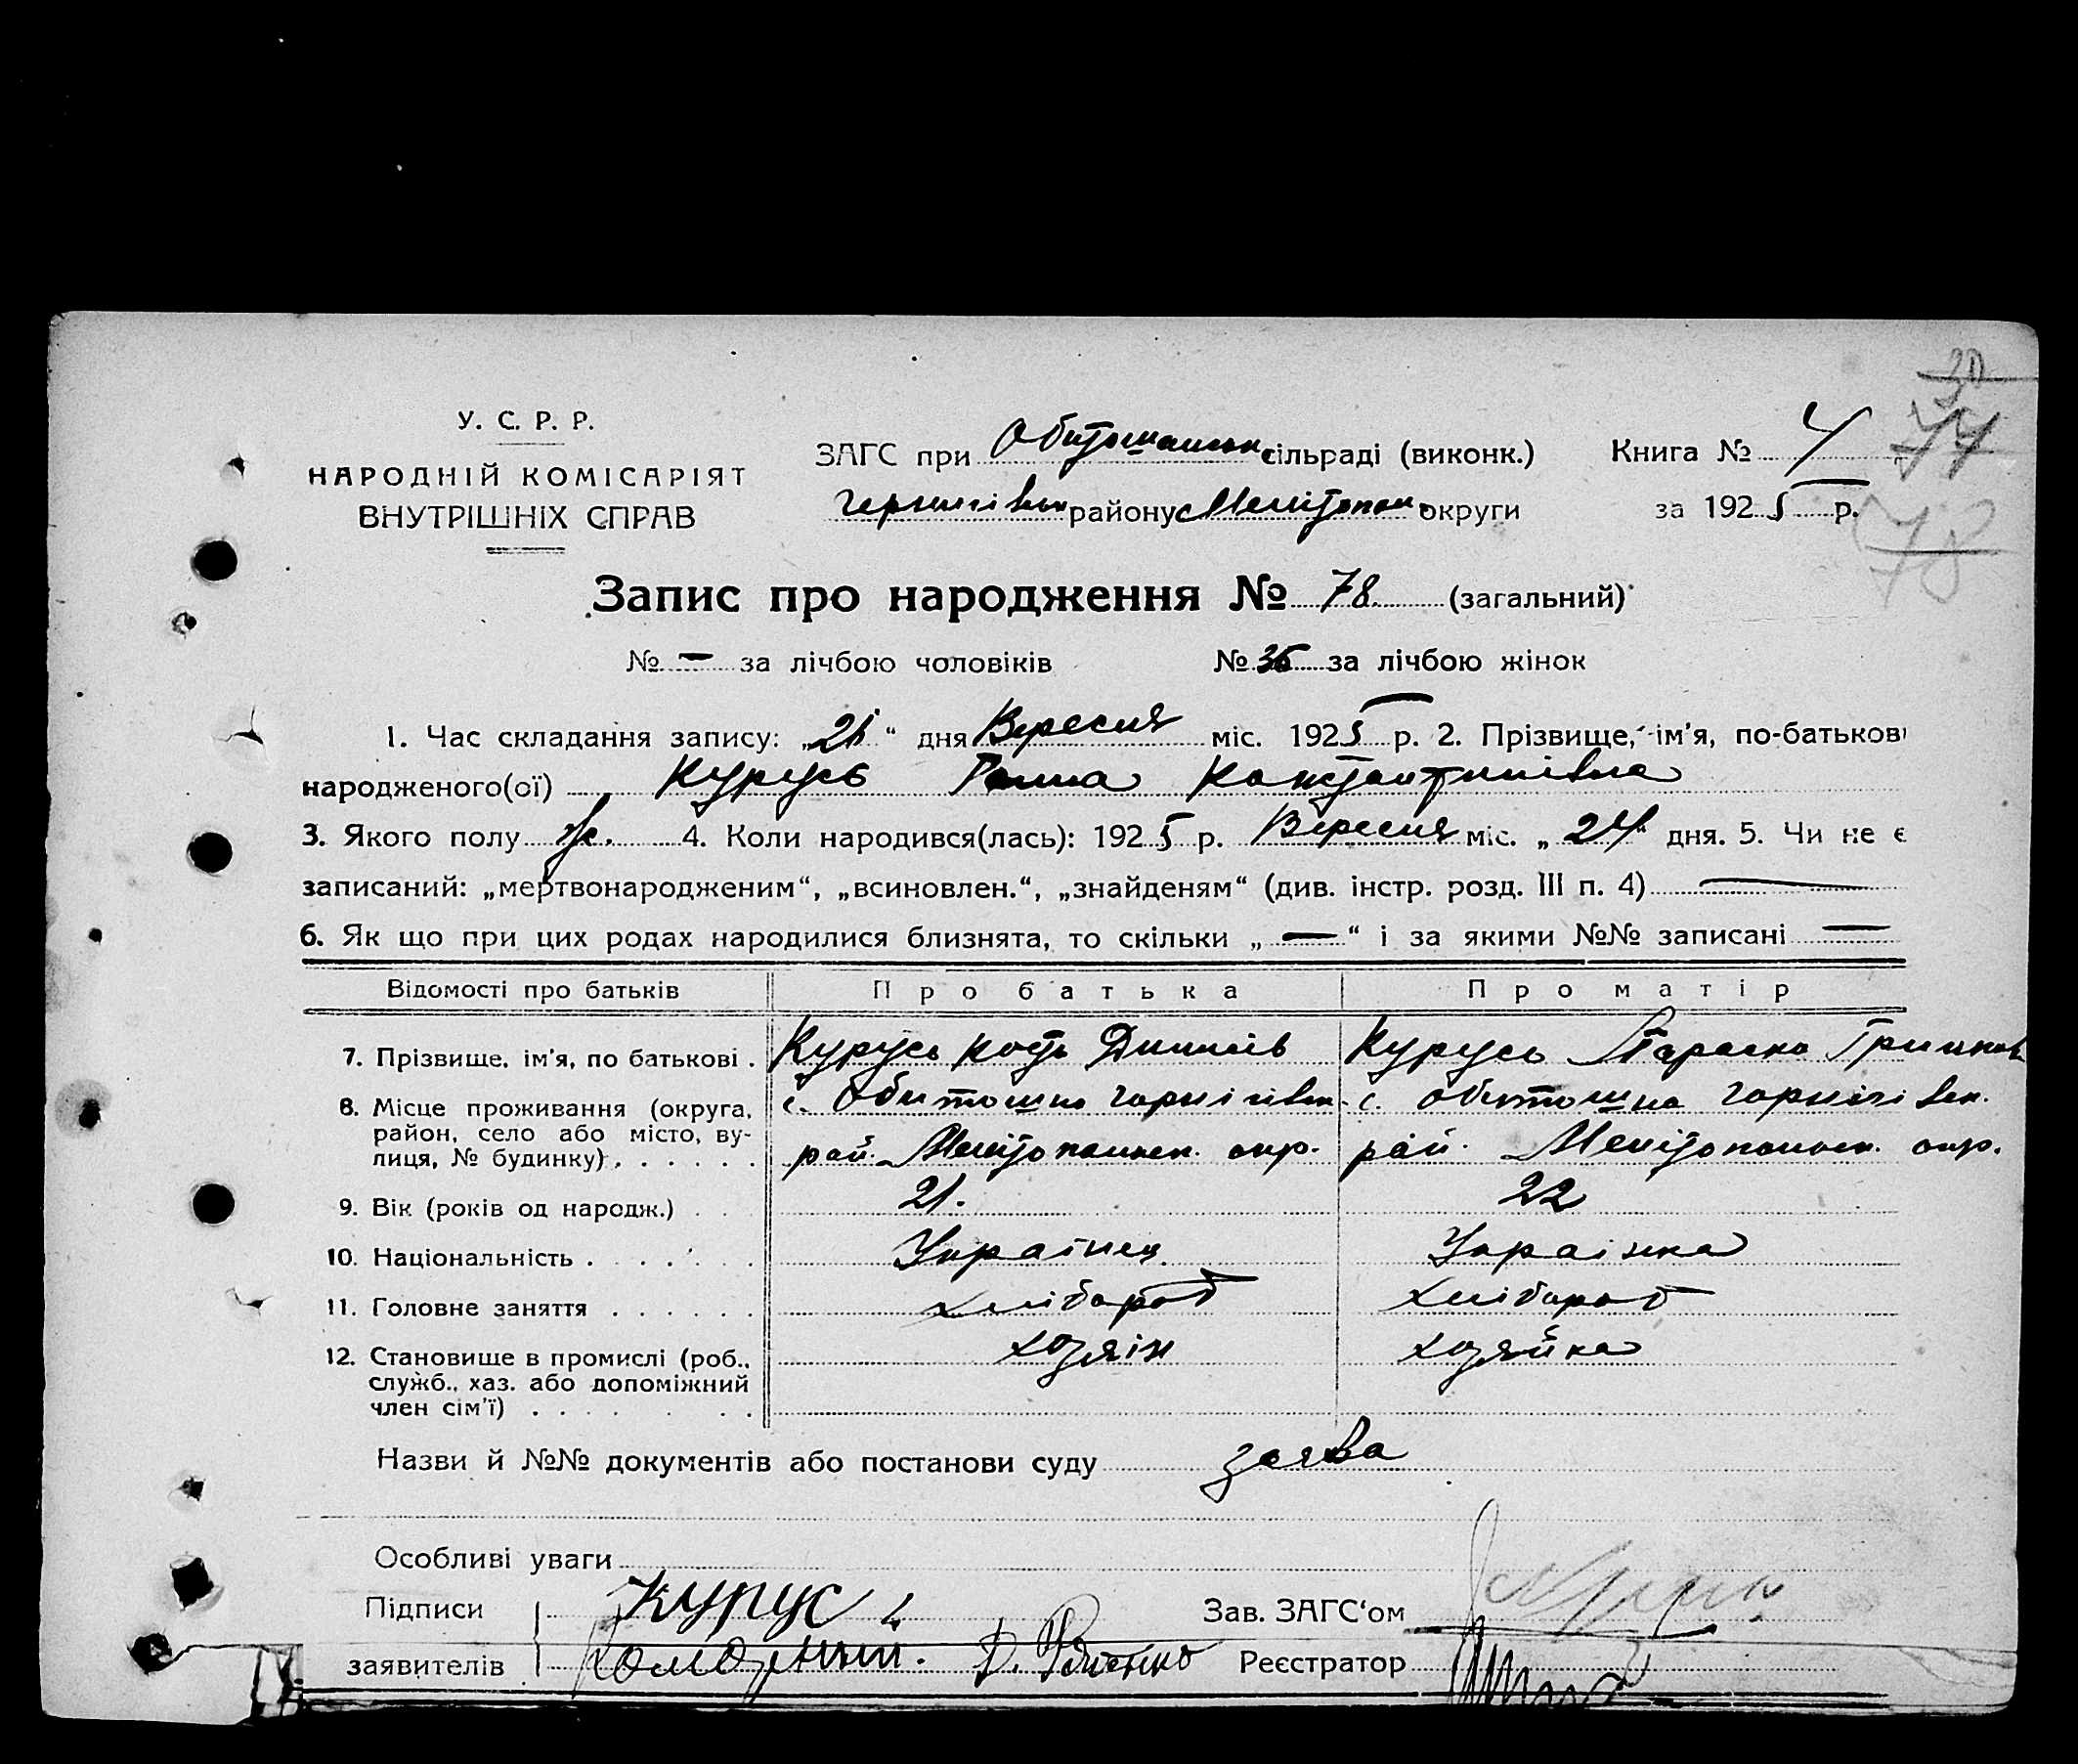 У. С. Р. Р.
НАРОДНІЙ КОМІСАРІЯТ
ВНУТРІШНІХ СПРАВ
ЗАГС при Обиточанськ. сільраді (виконк.)
Чернігівськ району Мелітопол. округи
Книга № 4
за 1925 р.
78
Запис про народження № 78 (загальний)
№ — за лічбою чоловіків № 36 за лічбою жінок
1. Час складання запису: „ “ дня Вересня міс. 1925 р. 2. Прізвище, ім'я, по-батькові
народженого(ої) Курусь Ганна Константинівна
3. Якого полу ж. 4. Коли народився(лась): 1925 р. Вересня міс. „24“ дня. 5. Чи не є
записаний: „мертвонародженим“, „всиновлен.“, „знайденям“ (див. інстр. розд. III п. 4) —
6. Як що при цих родах народилися близнята, то скільки „ — “ і за якими №№ записані —
Відомості про батьків Про батька Про матір
7. Прізвище, ім'я, по батькові . Курусь Кость Курусь
8. Місце проживання (округа, район, село або місто, вулиця, № будинку) . . . . . .
с. Чернігівськ. с. Чернігівськ.
рай. Мелітопольск. окр. рай. Мелітопольск. окр.
9. Вік (років од народж.) . . 21. 22
10. Національність . . . . . . Українец Українка
11. Головне заняття . . . . . . хлібороб хлібороб
12. Становище в промислі (роб., служб., хаз. або допоміжний член сім'ї) . . . . . . хозяін хозяйка
Назви й №№ документів або постанови суду заява
Особливі уваги
Підписи Курус Зав. ЗАГС‘ом
заявителів Реєстратор